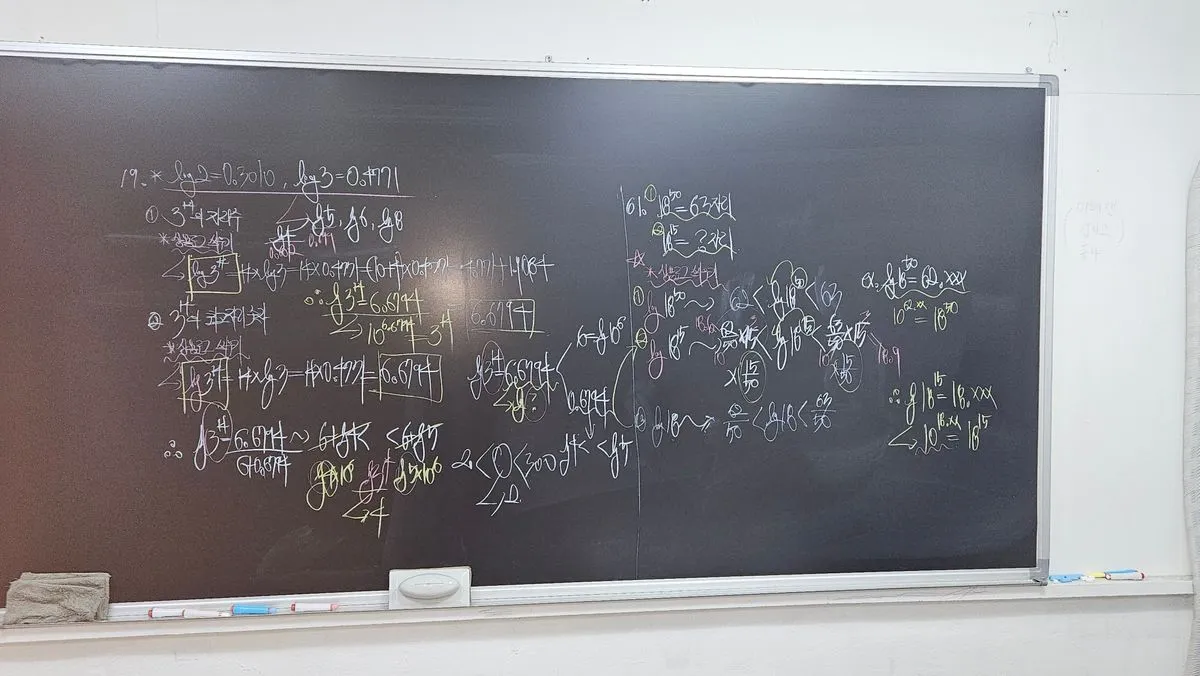 19. * log2=0.3010, log3=0.4771
① 3¹⁴의 자릿수
log5, log6, log8
* 상용로그 씌우기
log3¹⁴=14×log3=14×0.4771=(10+4)×0.4771=4.771+1.9084
∴ log3¹⁴=6.6794
6.6794
② 3¹⁴의 최고자리 숫자
* 상용로그 씌우기
log3¹⁴=14×log3=14×0.4771=6.6794
log3¹⁴=6.6794
6=log10⁶
0.6794
∴ log3¹⁴=6.6794 ~ 6+log4< <6+log5
6+0.6794
log4×10⁶ log3¹⁴ log5×10⁶
→4
200< <300 log4< <log5
→2.
61. ① 18⁵⁰=63자리
② 18¹⁵=?자리
* 상용로그 씌우기
① log18⁵⁰ ~ 62<log18⁵⁰<63
② log18¹⁵ ~ 62/50×15<log18¹⁵<63/50×15
18.6
18.9
×15/50 ×15/50
③ log18 ~ 62/50<log18<63/50
log18⁵⁰=62.xxx
10^62.xx=18⁵⁰
∴ log18¹⁵=18.xxx
→10^18.xx=18¹⁵